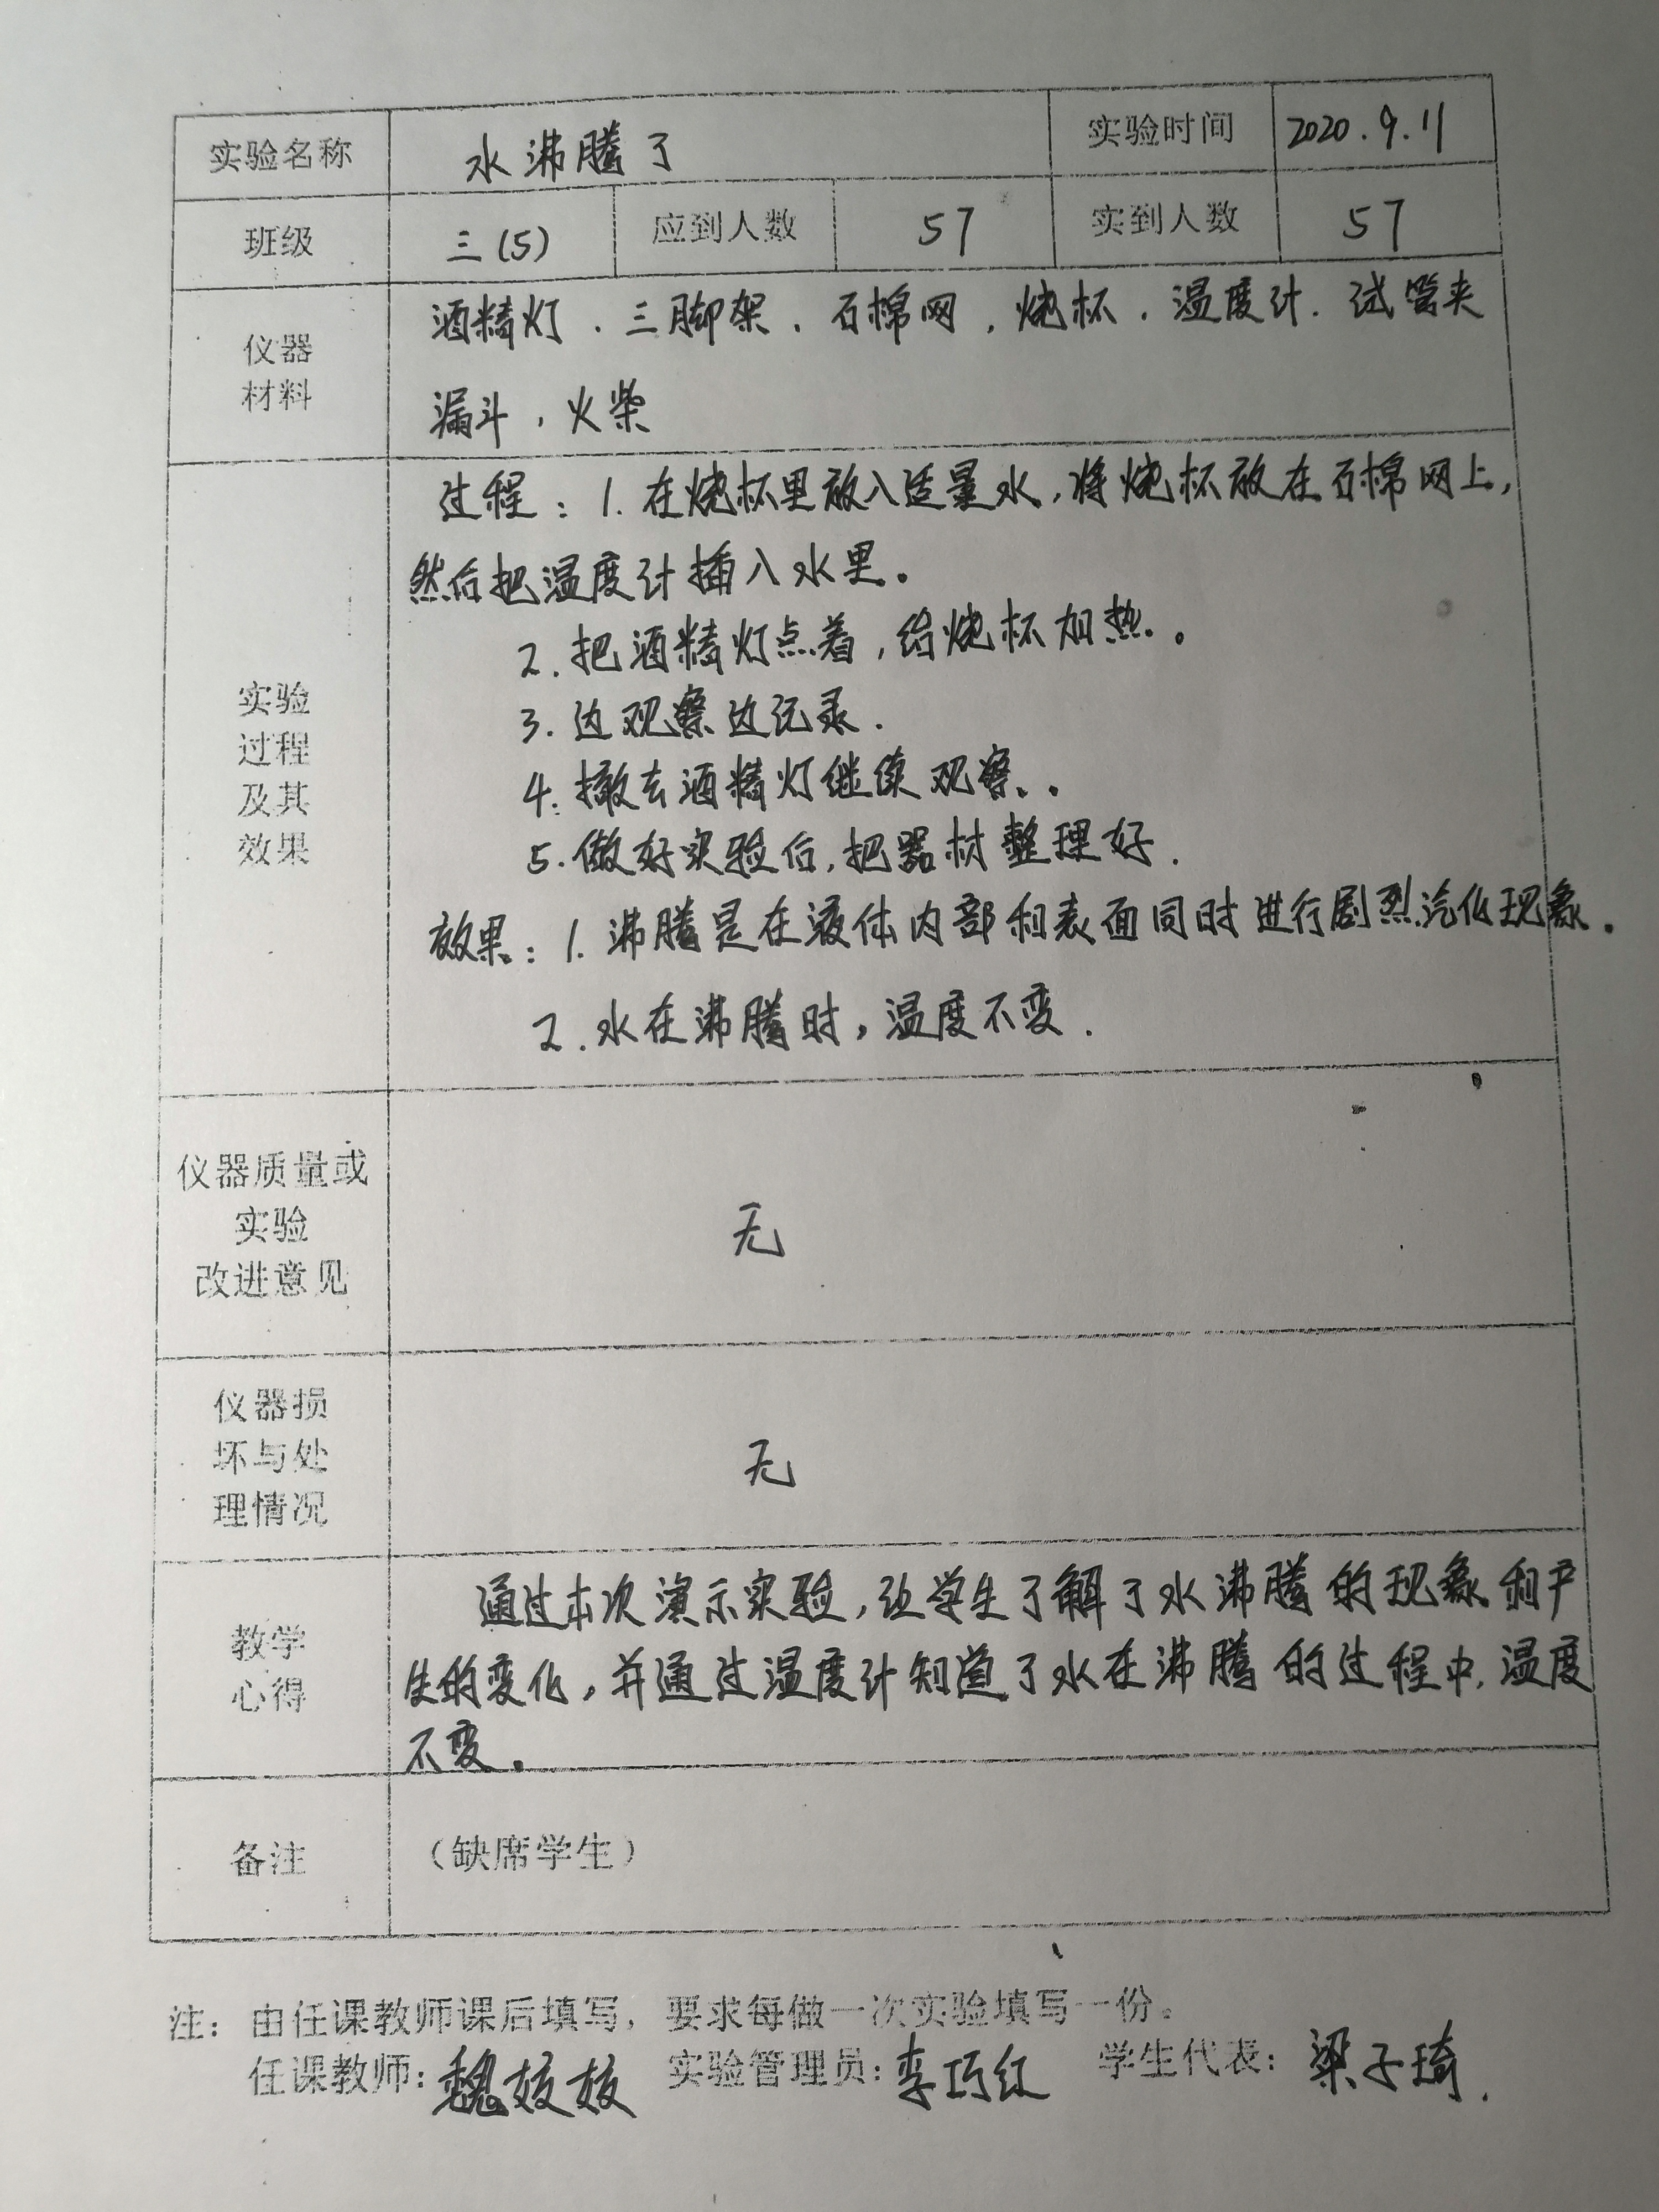 实验名称 水沸腾了 实验时间 2020.9.11
班级 三(5) 应到人数 57 实到人数 57
仪器
材料
酒精灯、三脚架、石棉网,烧杯,温度计.试管夹
漏斗,火柴
实验
过程
及其
效果
过程:1.在烧杯里放入适量水,将烧杯放在石棉网上,
然后把温度计插入水里。
2.把酒精灯点着,给烧杯加热。
3.边观察边记录.
4.撤去酒精灯继续观察.
5.做好实验后,把器材整理好.
效果:1.沸腾是在液体内部和表面同时进行剧烈汽化现象.
2.水在沸腾时,温度不变.
仪器质量或
实验
改进意见
无
仪器损
坏与处
理情况
无
教学
心得
通过本次演示实验,让学生了解了水沸腾的现象和产
生的变化,并通过温度计知道了水在沸腾的过程中,温度
不变。
备注 (缺席学生)
注:由任课教师课后填写,要求每做一次实验填写一份。
任课教师:魏姣姣 实验管理员:李巧红 学生代表:梁子琦.